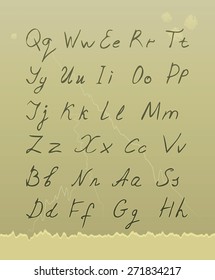 Qq Ww Ee Rr Tt
Yy Uu Ii Oo Pp
Jj Kk Ll Mm
Zz Xx Cc Vv
Bb Nn Aa Ss
Dd Ff Gg Hh
shutterstock.com · 271834217